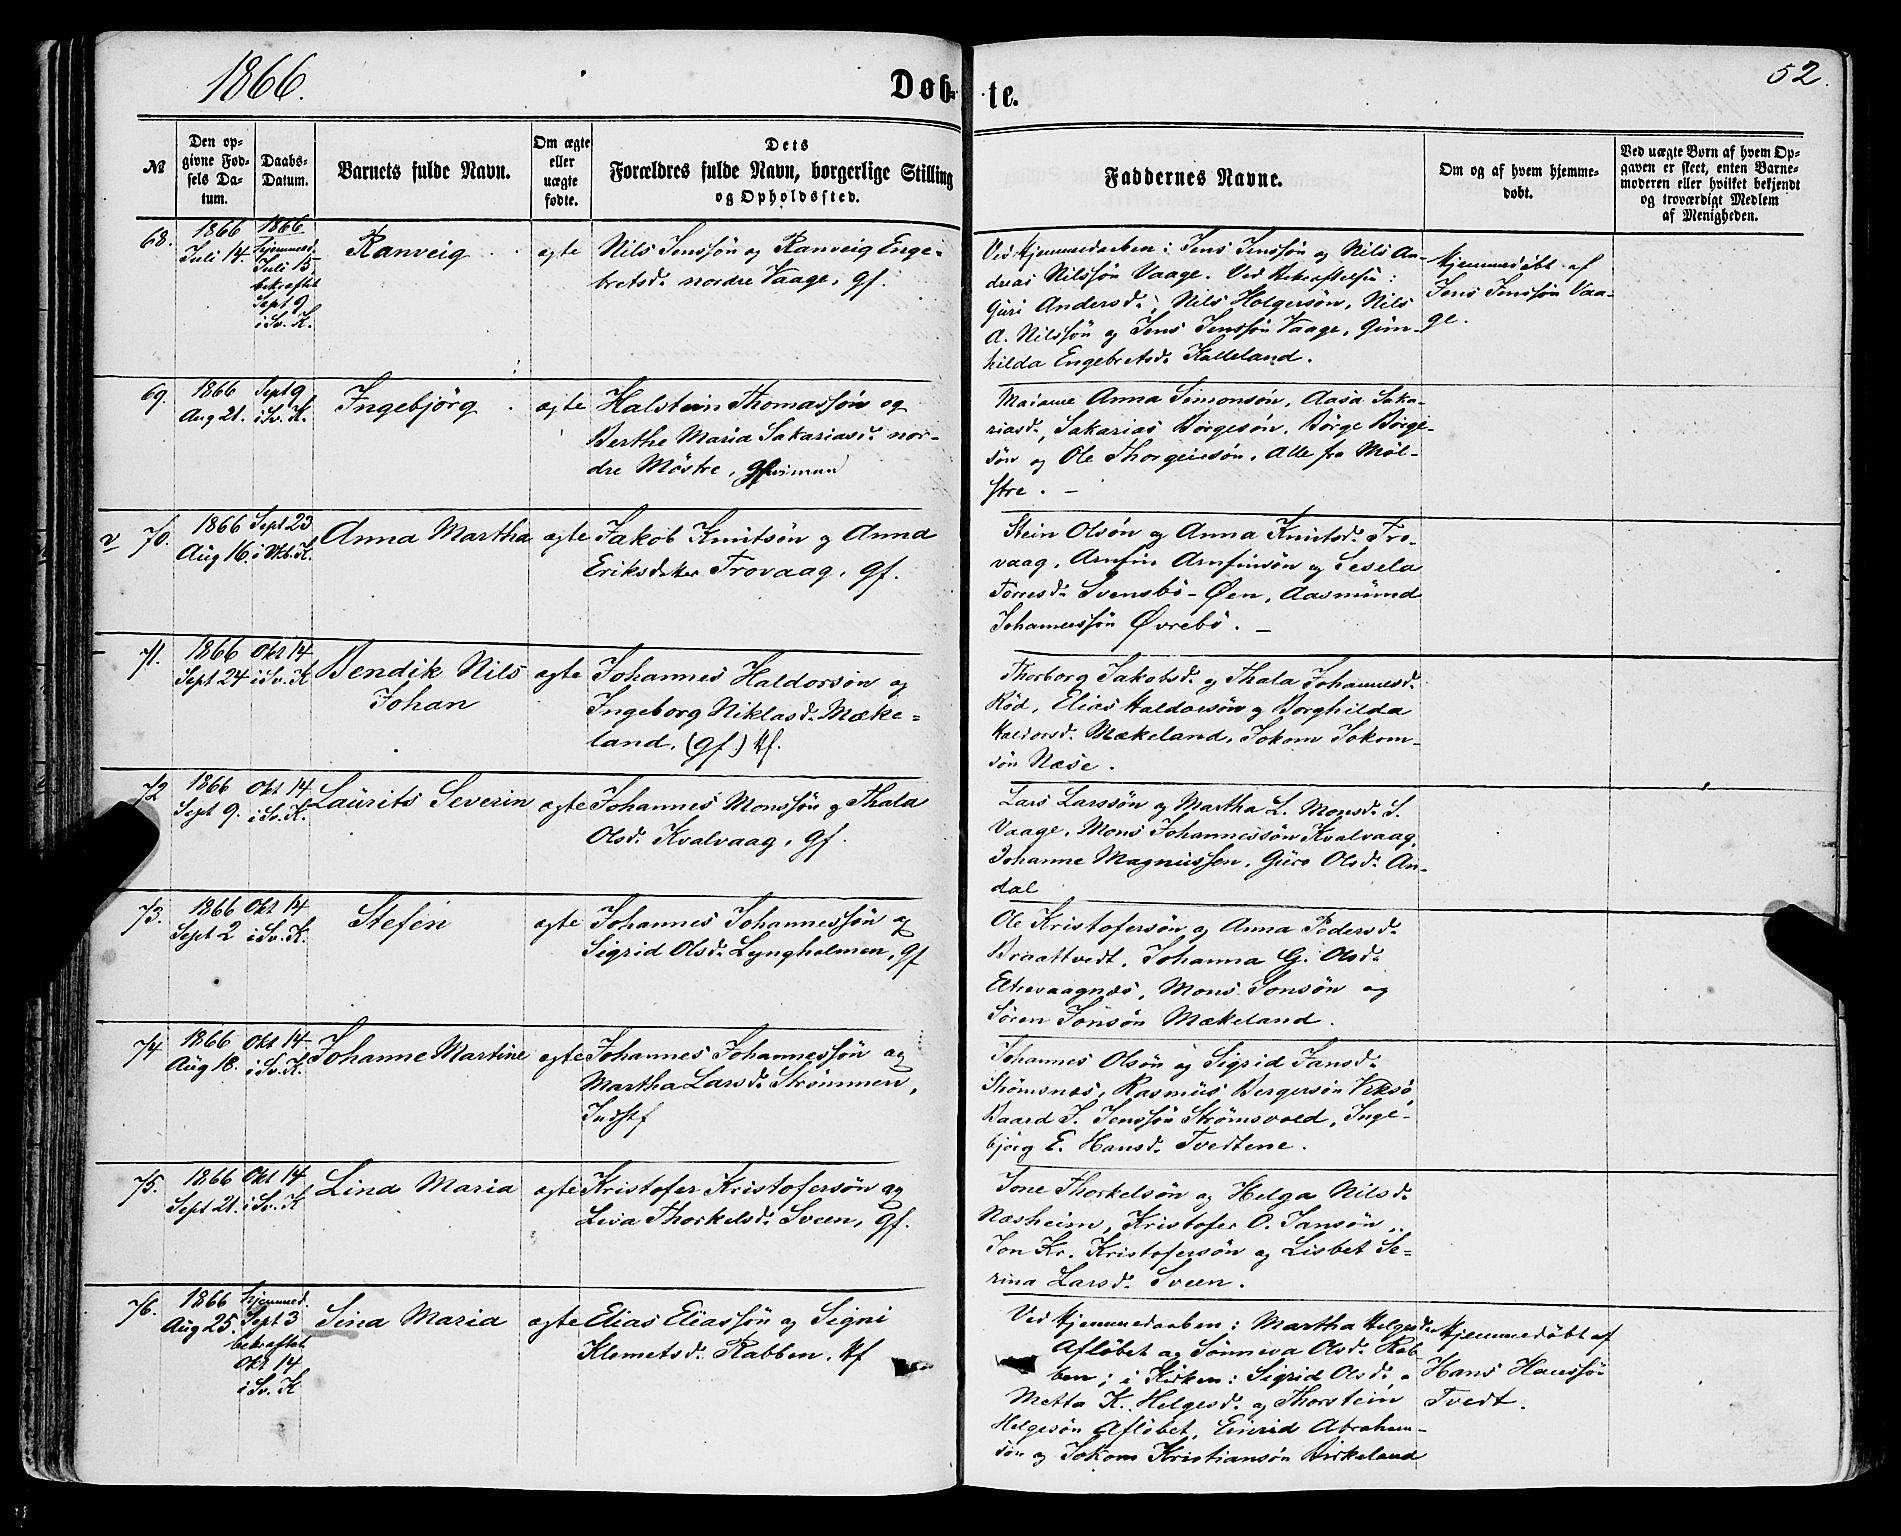 1866.
Døb-
te.
52.
№
Den op-
givne Fød-
sels Da-
tum.
Daabs-
Datum.
Barnets fulde Navn.
Om ægte
eller
uægte
fødte.
Dets
Forældres fulde Navn, borgerlige Stilling
og Opholdssted.
Faddernes Navne.
Om og af hvem hjemme-
døbt.
Ved uægte Børn af hvem Op-
gaven er skeet, enten Barne-
moderen eller hvilket bekjendt
og troværdigt Medlem
af Menigheden.
68.
1866
Juli 14.
1866
hjemmed.
Juli 15
bekræftet
Sept 9
i Sv. K.
Ranveig
ægte
Nils Jenssøn og Ranveig Enge-
bretsd. nordre Vaage, gf.
Ved Hjemmedaaben: Jens Jenssøn og Nils An-
dreas Nilssøn Vaage. Ved Bekræftelsen:
Guri Andersd., Nils Holgersøn, Nils
A. Nilssøn og Jens Jenssøn Vaage, Gun-
hilda Engebretsd. Kalleland.
Hjemmedøbt af
Jens Jenssøn Vaa-
ge.
69.
1866
Aug 21.
Sept 9
i Sv. K.
Ingebjörg
ægte
Halstein Thomassøn og
Berthe Maria Sakariasd. nor-
dre Møstre,
Madame Anna Simonsøn, Aasa Saka-
riasd., Sakarias Børgesøn, Børge Børge-
søn og Ole Thorgeirsøn, Alle fra Møl-
stre. –
v
70.
1866
Aug 16.
Sept 23
i Utb. K.
Anna Martha
ægte
Jakob Knutsøn og Anna
Eriksdatter Trovaag, gf.
Stein Olsøn og Anna Knutsd. Tro-
vaag, Arnfin Arnfinsøn og Sesela
Torresd. Svensbö-Øen, Aasmund
Johannessøn Øvrebö. –
71.
1866
Sept 24
Okt 14
i Sv. K
Bendik Nils
Johan
ægte
Johannes Haldorsøn og
Ingeborg Niklasd. Mæke-
land, (gf.) Hf.
Thorborg Jakobsd. og Thala Johannesd.
Rød, Elias Haldorsøn og Borghilda
Haldorsd. Mækeland, Jokom Jokom-
søn Næse.
72
1866
Sept 9.
Okt 14
i Sv. K.
Laurits Severin
ægte
Johannes Monssøn og Thala
Olsd. Kvalvaag, gf.
Lars Larssøn og Martha L. Monsd. S.
Vaage, Mons Johannessøn Kvalvaag,
Johanne Magnussen, Guro Olsd. An-
dal
73.
1866
Sept 2
Okt 14
i Sv. K.
Stefen
ægte
Johannes Johannessøn og
Sigrid Olsd. Lyngholmen, gf
Ole Kristofersøn og Anna Pedersd.
Braattvedt, Johanna G. Olsd.
Eltravaagnæs, Mons Jonsøn og
Søren Jonsøn Mækeland.
74
1866
Aug 18.
Okt 14
i Sv. K.
Johanne Martine
ægte
Johannes Johannessøn og
Martha Larsd. Strømmen,
Indstf
Johannes Olsøn og Sigrid Jansd.
Strømsnæs, Rasmus Bergersøn Veksø,
Baard J. Jenssøn Strømsvold, Inge-
bjørg E. Hansd. Tvedtene.
75.
1866
Sept 21.
Okt 14
i Sv. K
Lina Maria
ægte
Kristofer Kristofersøn og
Liva Thorkelsd. Sveen, gf.
Tone Thorkelsøn og Helga Nilsd.
Næsheim, Kristofer O. Jansøn,
Jon Kr. Kristofersøn og Lisbet Se-
rina Larsd. Sveen.
76.
1866
Aug 25.
hjemmed.
Sept 3
bekræftet
Okt 14
i Sv. K
Sina Maria
ægte
Elias Eliassøn og Signi
Klemetsd. Rabben, Hf
Ved Hjemmedaaben: Martha Helgesd.
Afløbet og Sønneva Olsd. Rab-
ben; i Kirken: Sigrid Olsd.,
Metta K. Helgesd. og Thorstein
Helgesøn Afløbet, Einrid Abraham-
søn og Jokom Kristiansøn Birkeland
Hjemmedøbt af
Hans Hanssøn
Tvedt.